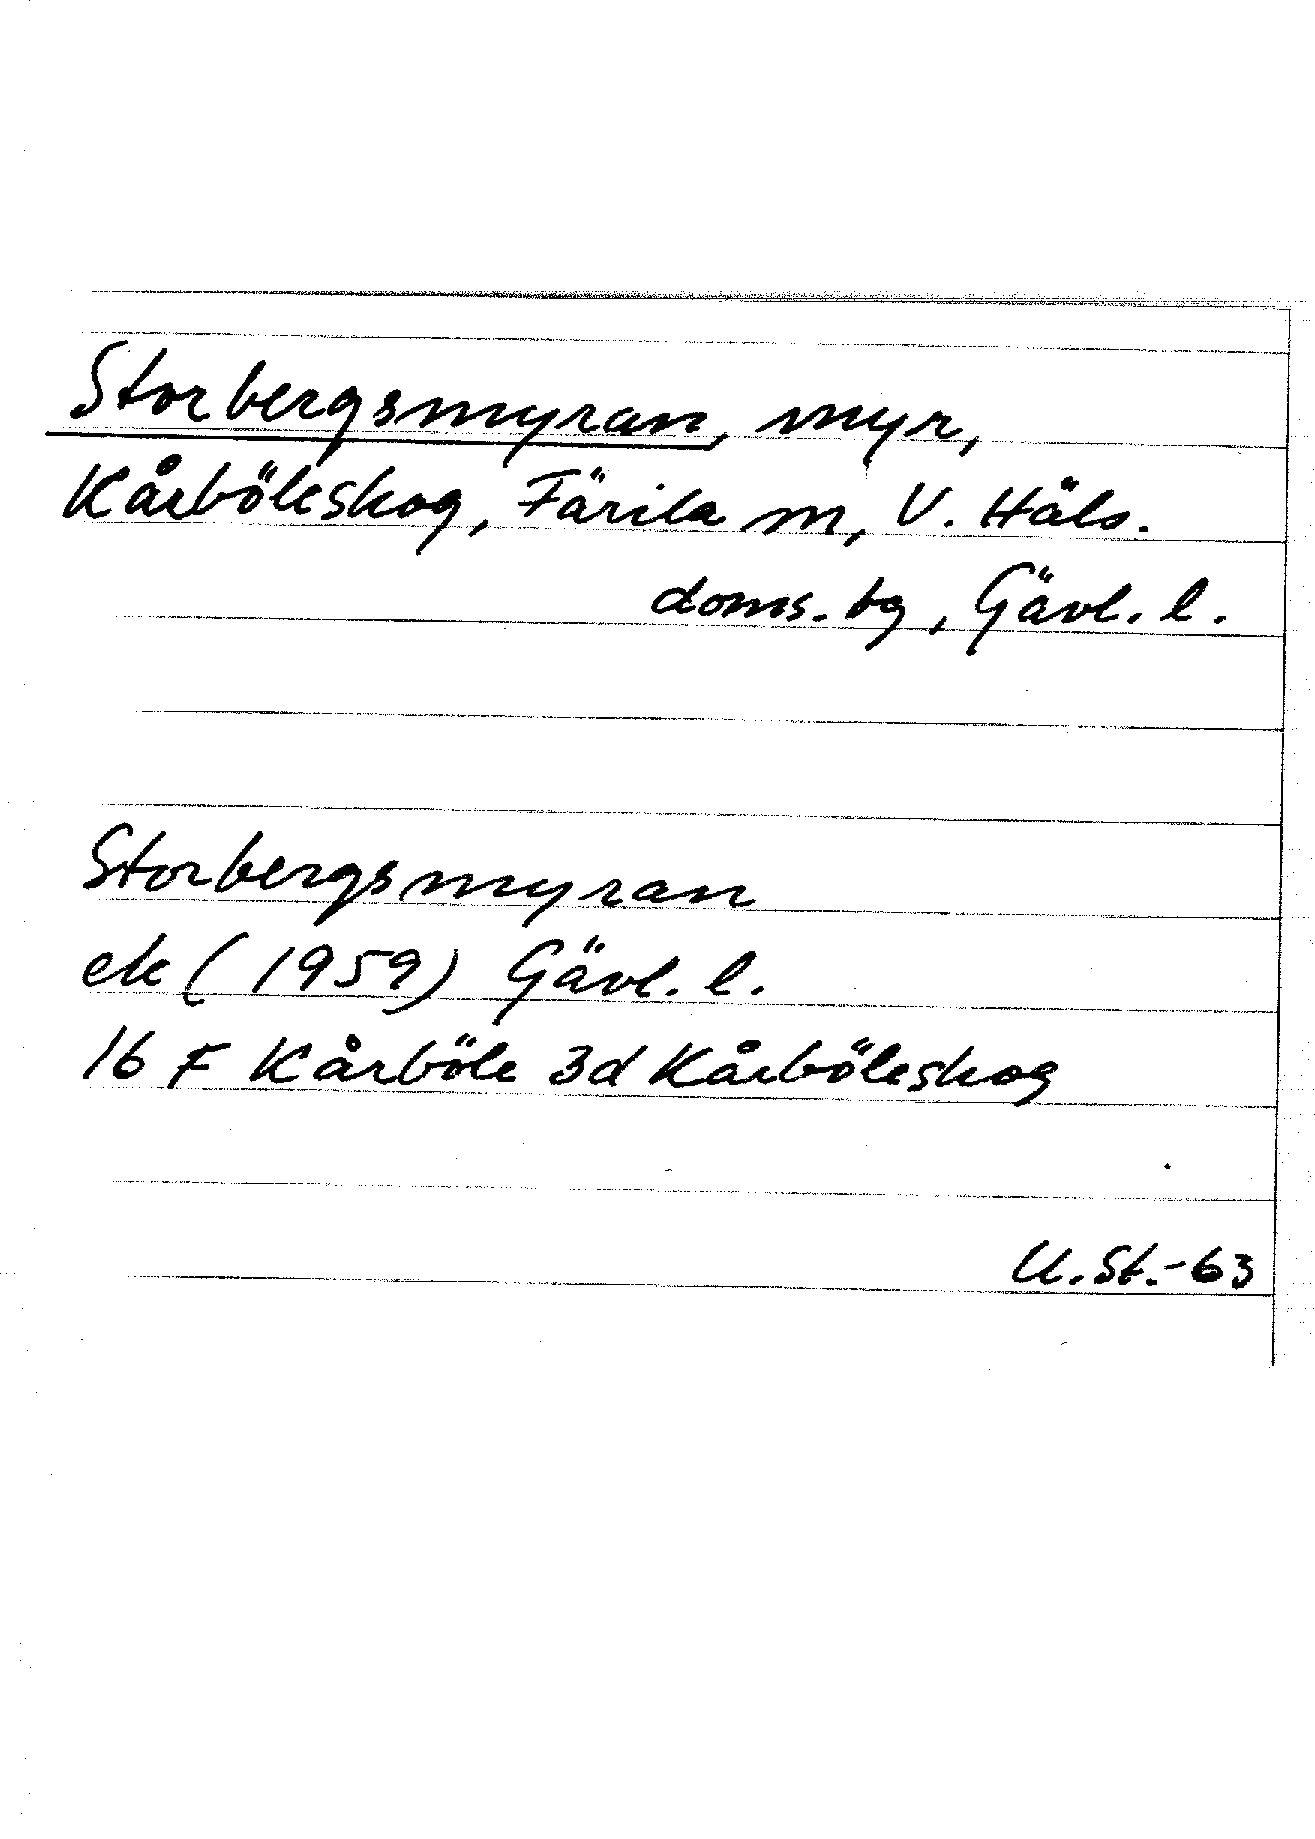 Storbergsmyran, myr,
Kårböleskog, Färila m, V. Häls.
doms. tg, Gävl. l.
Storbergsmyran
ek (1959) Gävl. l.
16 F Kårböle 3d Kårböleskog
U. St.-63